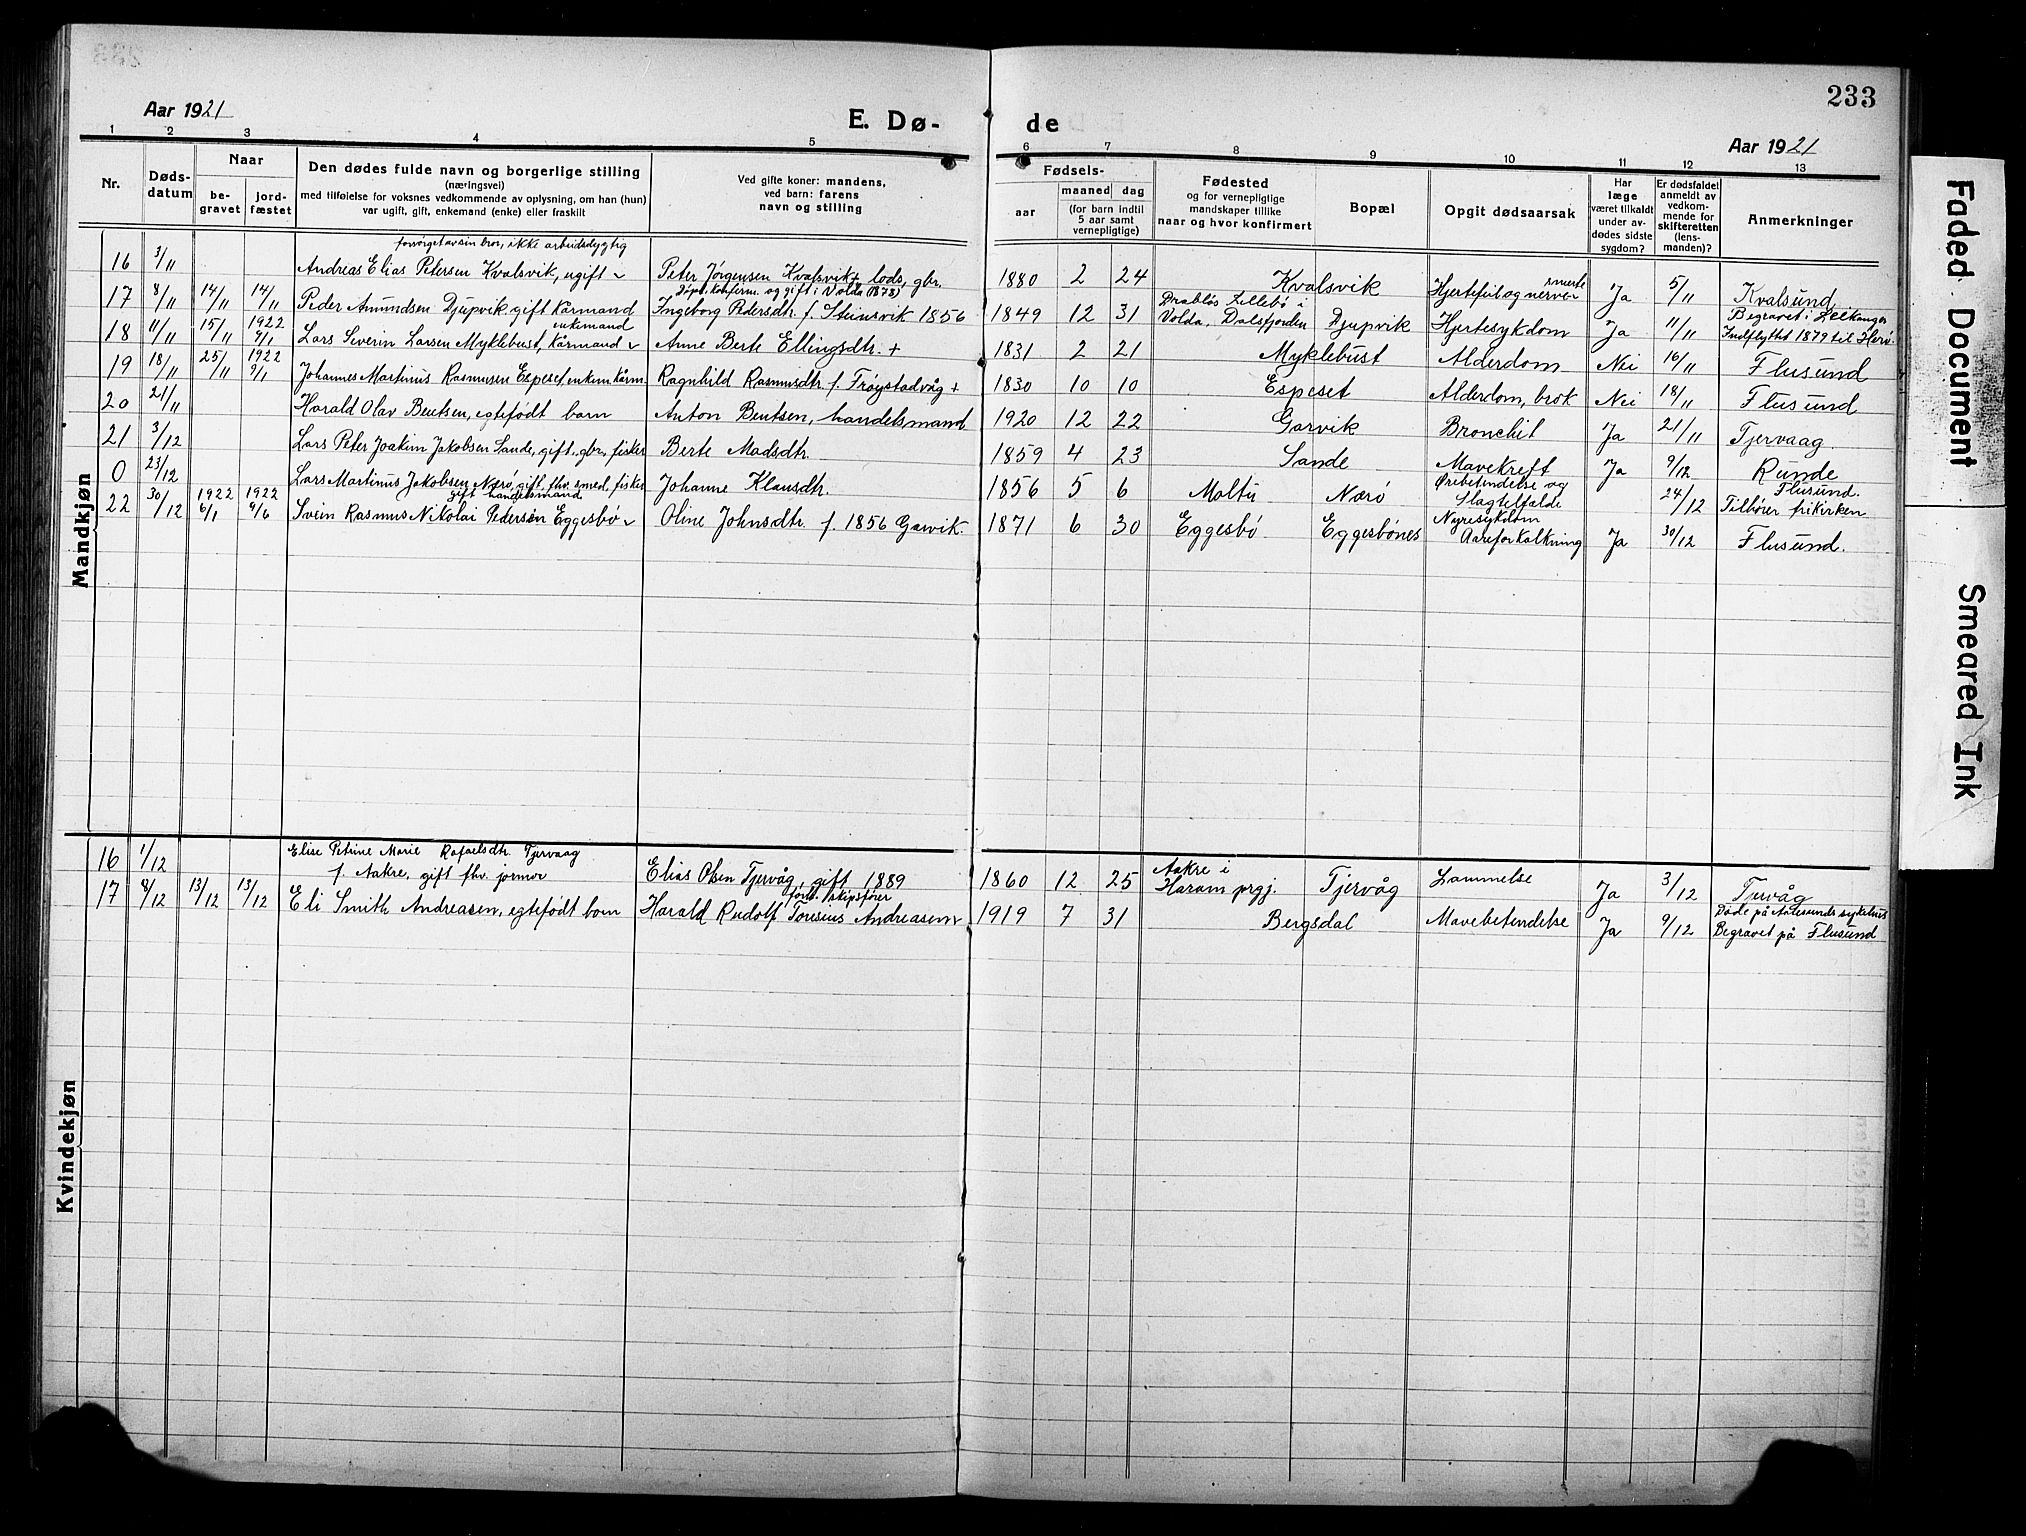 233
Aar 1921
E. Dø-
de
Aar 1921
1 2 3 4 5 6 7 8 9 10 11 12 13
Nr.
Døds-
datum
Naar
be-
gravet
jord-
fæstet
Den dødes fulde navn og borgerlige stilling
(næringsvei)
med tilføielse for voksnes vedkommende av oplysning, om han (hun)
var ugift, gift, enkemand (enke) eller fraskilt
Ved gifte koner: mandens,
ved barn: farens
navn og stilling
Fødsels-
aar
maaned dag
(for barn indtil
5 aar samt
vernepligtige)
Fødested
og for vernepligtige
mandskaper tillike
naar og hvor konfirmert
Bopæl
Opgit dødsaarsak
Har
læge
været tilkaldt
under av-
dødes sidste
sygdom?
Er dødsfaldet
anmeldt av
vedkom-
mende for
skifteretten
(lens-
manden)?
Anmerkninger
Mandkjøn
forsørget av sin bror, ikke arbeidsdygtig
16 3/11 Andreas Elias Petersen Kvalsvik, ugift Peter Jørgensen Kvalsvik + lods, gbr. 1880 2 24 Kvalsvik Hjertefeil og nerve- smerte Ja 5/11 Kvalsund
Døpt, konferm. og gift i Volda 1878) Drabløs Lillebø i Begravet i Leikanger
17 8/11 14/11 14/11 Peder Amundsen Djupvik, gift Kårmand Ingeborg Pedersdtr. f. Steinsvik 1856 1849 12 31 Volda, Dalsfjorden Djupvik Hjertesykdom Ja 11/11 Indflyttet 1879 til Herø.
enkemand
18 11/11 15/11 1922 9/1 Lars Severin Larsen Myklebust, Kårmand Anne Berte Ellingsdtr. + 1831 2 21 Myklebust Alderdom Nei 16/11 Flusund
19 18/11 25/11 1922 9/1 Johannes Martinus Rasmussen Espeset enkem. kårm. Ragnhild Rasmusdtr. f. Frøystadvåg + 1830 10 10 Espeset Alderdom, brok Nei 18/11 Flusund
20 21/11 Harald Olav Bentsen, egtefødt barn Anton Bentsen, handelsmand 1920 12 22 Garvik Bronchit Ja 21/11 Tjervaag
21 3/12 Lars Peter Joakim Jakobsen Sande, gift, gbr. fisker Berte Madsdtr. 1859 4 23 Sande Mavekreft Ja 9/12 Runde
Ørebetendelse og Flusund.
0 23/12 Lars Martinus Jakobsen Nærø, gift, fhv. smed, fisker Johanne Klausdtr. 1856 5 6 Moltu Nærø Slagtilfælde 24/12 Tilhører frikirken
gift handelsmand Nyresykdom
22 30/12 1922 6/1 1922 4/6 Svein Rasmus Nikolai Pedersen Eggesbø Oline Johnsdtr. f. 1856 Garvik. 1871 6 30 Eggesbø Eggesbønes Aareforkalkning Ja 30/12 Flusund.
Kvindekjøn
16 1/12 Elise Petrine Marie Rafaelsdtr. Tjervaag Aakre i
f. Aakre, gift fhv. jormor Elias Olsen Tjervåg, gift 1889 1860 12 25 Haram prgj. Tjervåg Lammelse Ja 3/12 Tjervåg
forh. skipsfører Døde på Aalesunds sykehus
17 8/12 13/12 13/12 Eli Smith Andreasen, egtefødt barn Harald Rudolf Toresius Andreasen 1919 7 31 Bergsdal Mavebetendelse Ja 9/12 Begravet på Flusund
Faded Document
Smeared Ink